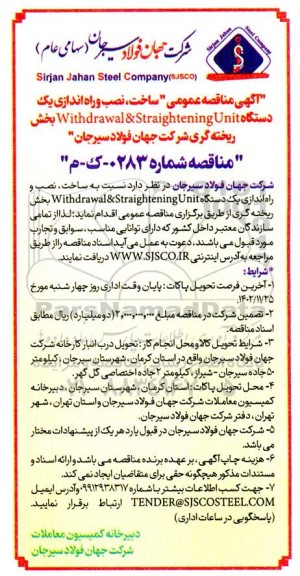 Sirjan Jahan Steel Company
شرکت جهان فولاد سیرجان (سهامی عام)
Sirjan Jahan Steel Company (SJSCO)
"آگهی مناقصه عمومی "ساخت، نصب و راه اندازی یک
دستگاه Withdrawal & Straightening Unit بخش
ریخته گری شرکت جهان فولاد سیرجان"
"مناقصه شماره ۰۲۸۳-ک-م"
شرکت جهان فولاد سیرجان در نظر دارد نسبت به ساخت، نصب و
راه اندازی یک دستگاه Withdrawal & Straightening Unit بخش
ریخته گری از طریق برگزاری مناقصه عمومی اقدام نماید؛ لذا از تمامی
سازندگان معتبر داخل کشور که دارای توانایی مناسب، سوابق و تجارب
مورد قبول می باشند، دعوت به عمل می آید اسناد مناقصه را از طریق
مراجعه به آدرس اینترنتی WWW.SJSCO.IR دریافت نمایند.
*شرایط:
۱- آخرین فرصت تحویل پاکات: پایان وقت اداری روز چهار شنبه مورخ
۱۴۰۲/۱۱/۲۵.
۲- تضمین شرکت در مناقصه مبلغ ۲،۰۰۰،۰۰۰،۰۰۰ (دو میلیارد) ریال مطابق
اسناد مناقصه.
۳- شرایط تحویل کالا و محل انجام کار: تحویل درب انبار کارخانه شرکت
جهان فولاد سیرجان واقع در استان کرمان، شهرستان سیرجان، کیلومتر
۵۰ جاده سیرجان - شیراز، کیلومتر ۲ جاده اختصاصی گل گهر.
۴- محل تحویل پاکات: استان کرمان، شهرستان سیرجان، دبیرخانه
کمیسیون معاملات شرکت جهان فولاد سیرجان و استان تهران، شهر
تهران، دفتر شرکت جهان فولاد سیرجان.
۵- شرکت جهان فولاد سیرجان در قبول یا رد هر یک از پیشنهادات مختار
می باشد.
۶- هزینه چاپ آگهی، بر عهده برنده مناقصه می باشد و ارائه اسناد و
مستندات مذکور هیچگونه حقی برای متقاضیان ایجاد نمی کند.
۷- جهت کسب اطلاعات بیشتر با شماره ۰۹۹۱۲۹۳۸۳۱۷ و آدرس ایمیل
TENDER@SJSCOSTEEL.COM ارتباط برقرار نمایید.
(پاسخگویی در ساعات اداری)
دبیرخانه کمیسیون معاملات
شرکت جهان فولاد سیرجان